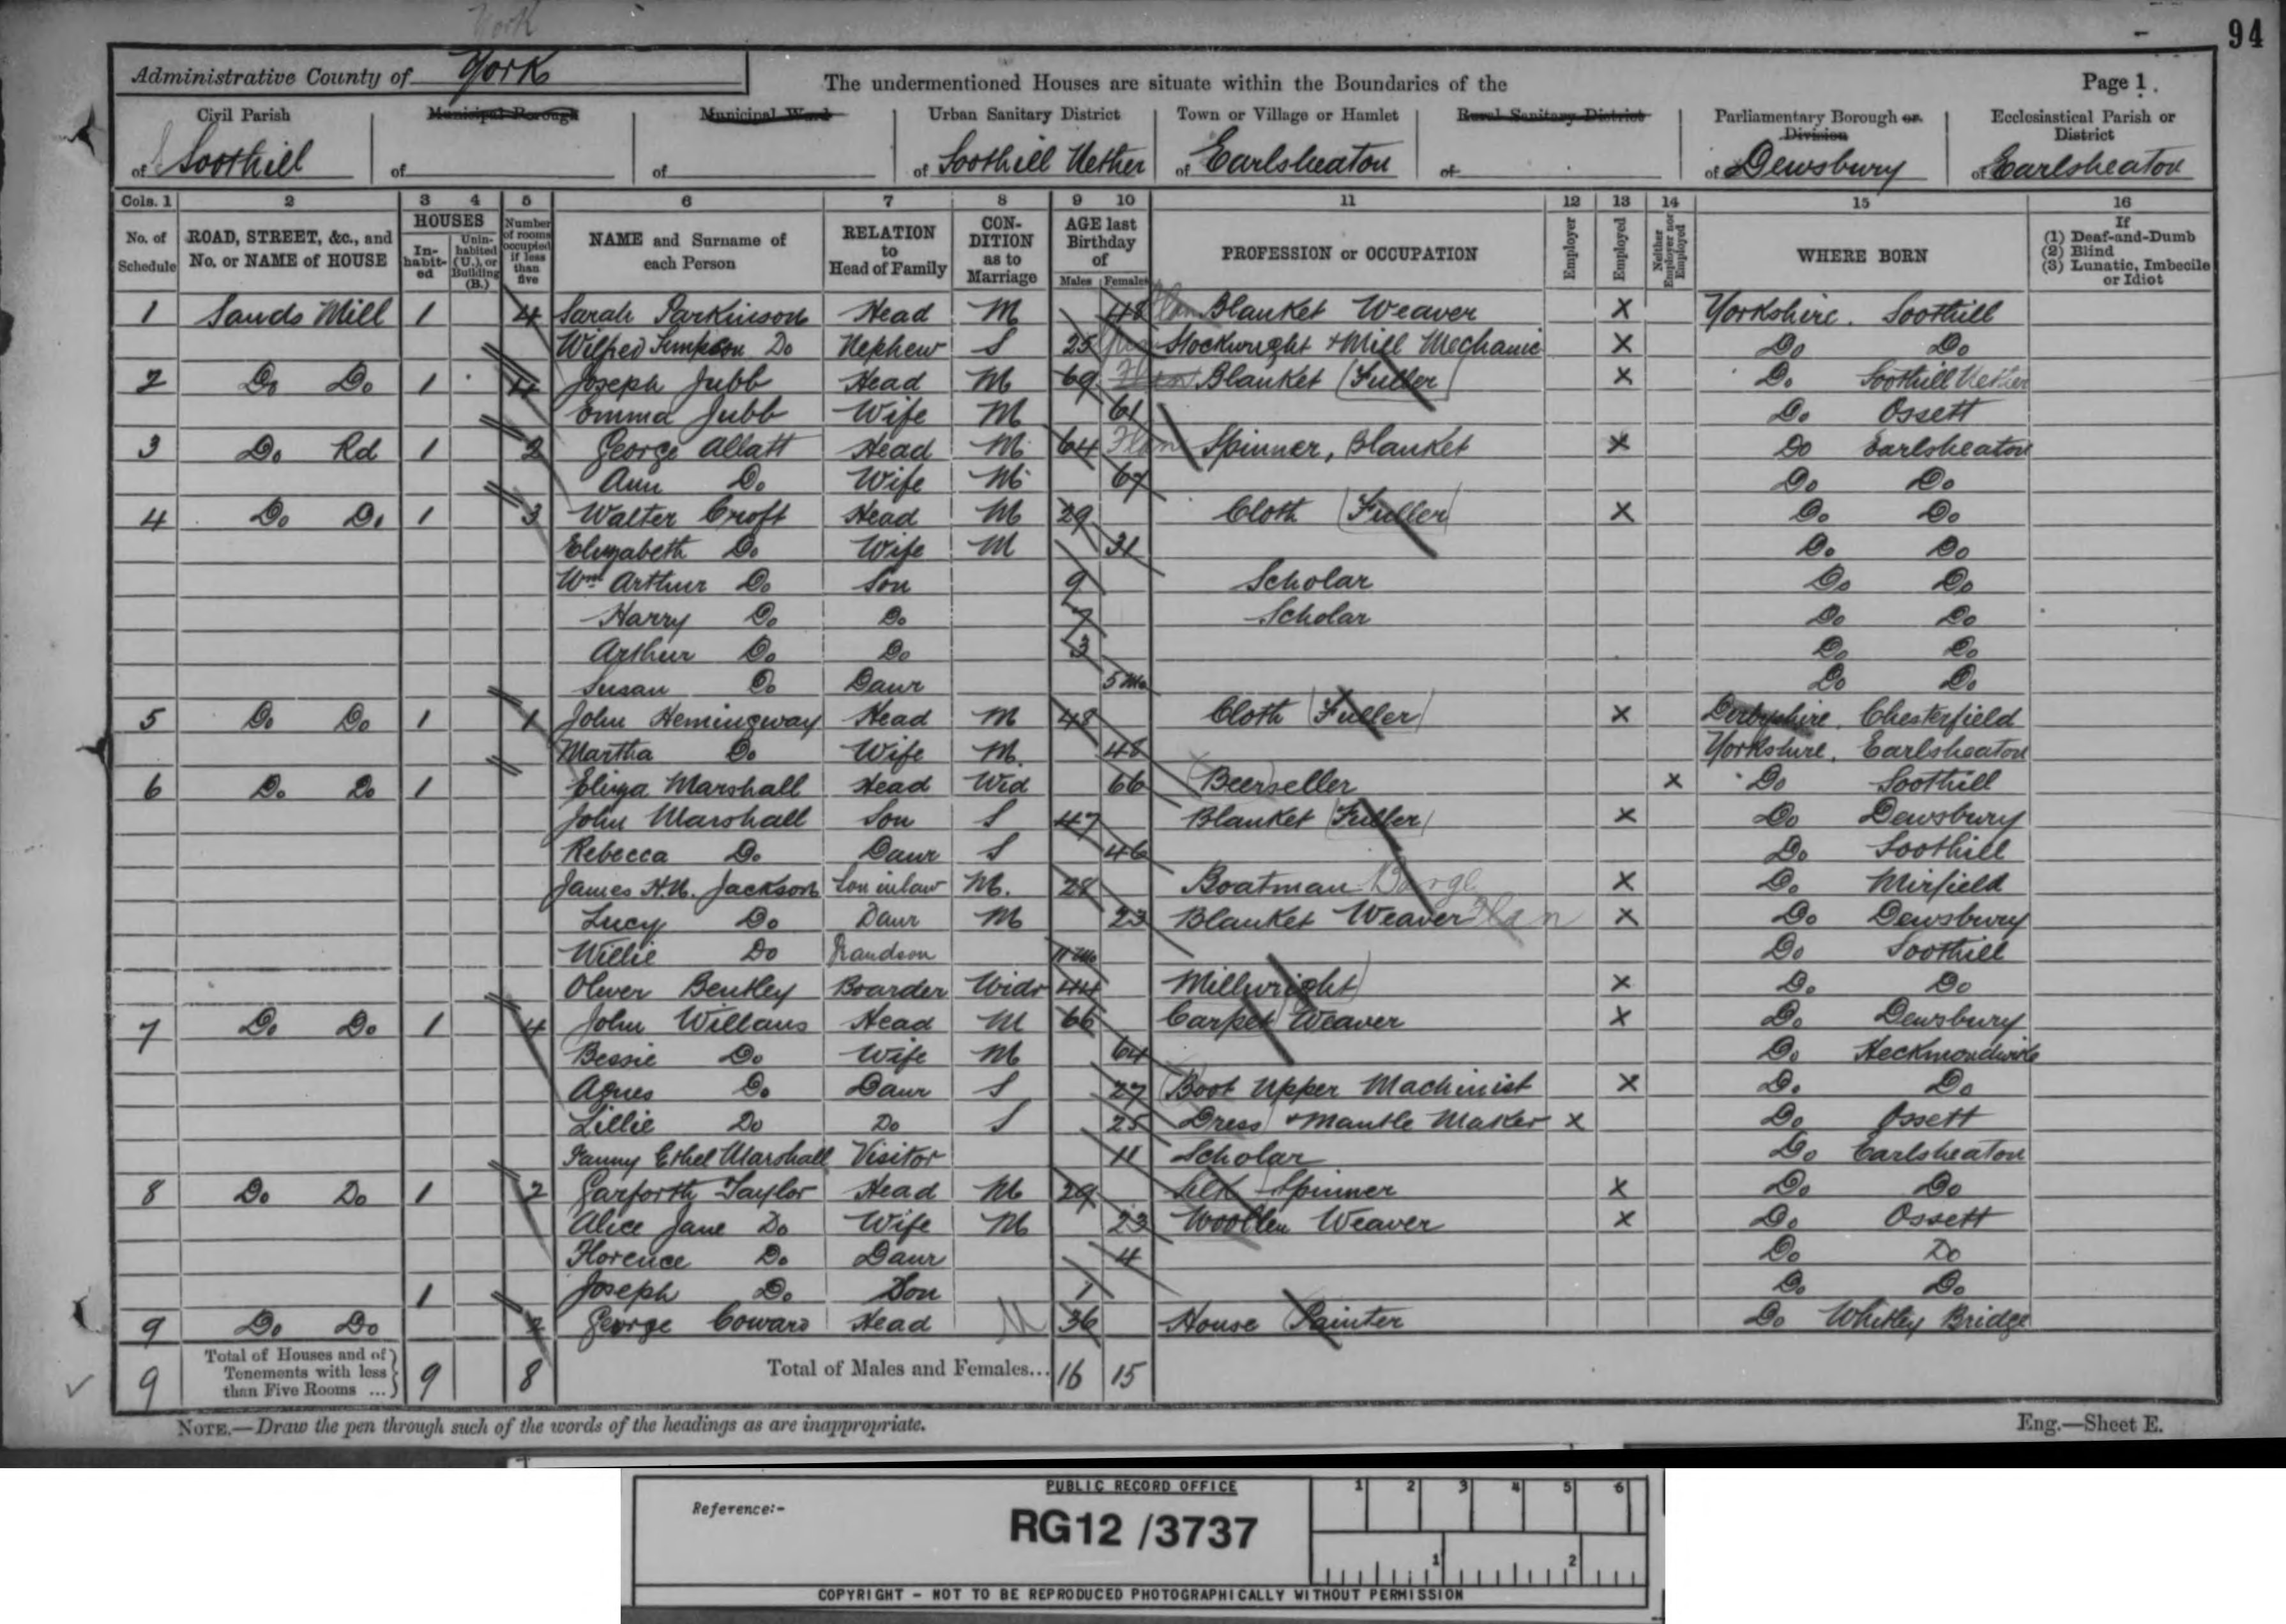 York
94
Administrative County of York
The undermentioned Houses are situate within the Boundaries of the
Page 1.
Civil Parish of Soothill
Municipal Borough of
Municipal Ward of
Urban Sanitary District of Soothill Nether
Town or Village or Hamlet of Earlsheaton
Rural Sanitary District of
Parliamentary Borough or Division of Dewsbury
Ecclesiastical Parish or District of Earlsheaton
Cols. 1 2 3 4 5 6 7 8 9 10 11 12 13 14 15 16
No. of Schedule
ROAD, STREET, &c., and No. or NAME of HOUSE
HOUSES
In-habit-ed
Unin-habited (U.), or Building (B.)
Number of rooms occupied if less than five
NAME and Surname of each Person
RELATION to Head of Family
CON-DITION as to Marriage
AGE last Birthday of
Males Females
PROFESSION or OCCUPATION
Employer
Employed
Neither Employer nor Employed
WHERE BORN
If (1) Deaf-and-Dumb (2) Blind (3) Lunatic, Imbecile or Idiot
1 Sands Mill 1 4 Sarah Parkinson Head M 48 Blanket Weaver X Yorkshire. Soothill
Wilfred Simpson Do Nephew S 25 Stockwright & Mill Mechanic X Do Do
2 Do Do 1 4 Joseph Jubb Head M 69 Blanket Fuller X Do Soothill Nether
Emma Jubb Wife M 61 Do Ossett
3 Do Rd 1 2 George Allatt Head M 64 Flan Spinner, Blanket X Do Earlsheaton
Ann Do Wife M 67 Do Do
4 Do Do 1 3 Walter Croft Head M 29 Cloth Fuller X Do Do
Elizabeth Do Wife M 31 Do Do
Wm Arthur Do Son 9 Scholar Do Do
Harry Do Do 7 Scholar Do Do
Arthur Do Do 3 Do Do
Susan Do Daur 5 Mo Do Do
5 Do Do 1 1 John Hemingway Head M 48 Cloth Fuller X Derbyshire. Chesterfield
Martha Do Wife M. 48 Yorkshire. Earlsheaton
6 Do Do 1 Eliza Marshall Head Wid 66 Beerseller X Do Soothill
John Marshall Son S 47 Blanket Fuller X Do Dewsbury
Rebecca Do Daur S 46 Do Soothill
James H.N. Jackson Son inlaw M. 28 Boatman Barge X Do Mirfield
Lucy Do Daur M 23 Blanket Weaver Flan X Do Dewsbury
Willie Do Grandson 11 Mo Do Soothill
Oliver Bentley Boarder Widr 44 Millwright X Do Do
7 Do Do 1 4 John Willans Head M 66 Carpet Weaver X Do Dewsbury
Bessie Do Wife M 64 Do Heckmondwike
Agnes Do Daur S 27 Boot Upper Machinist X Do Do
Lillie Do Do S 25 Dress & Mantle Maker X Do Ossett
Fanny Ethel Marshall Visitor 11 Scholar Do Earlsheaton
8 Do Do 1 2 Garforth Taylor Head M 29 Silk Spinner X Do Do
Alice Jane Do Wife M 23 Woollen Weaver X Do Ossett
Florence Do Daur 4 Do Do
Joseph Do Son 1 Do Do
9 Do Do 1 2 George Coward Head M 36 House Painter Do Whitley Bridge
9 Total of Houses and of Tenements with less than Five Rooms ... 9 8 Total of Males and Females... 16 15
NOTE.—Draw the pen through such of the words of the headings as are inappropriate.
Eng.—Sheet E.
PUBLIC RECORD OFFICE
Reference:-
RG12 /3737
1 2 3 4 5 6
1 2
COPYRIGHT - NOT TO BE REPRODUCED PHOTOGRAPHICALLY WITHOUT PERMISSION